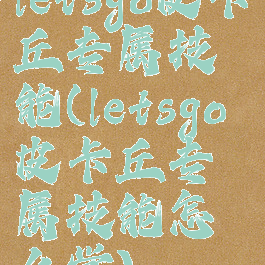 letsgo皮卡
丘专属技
能(letsgo
皮卡丘专
属技能怎
么学)